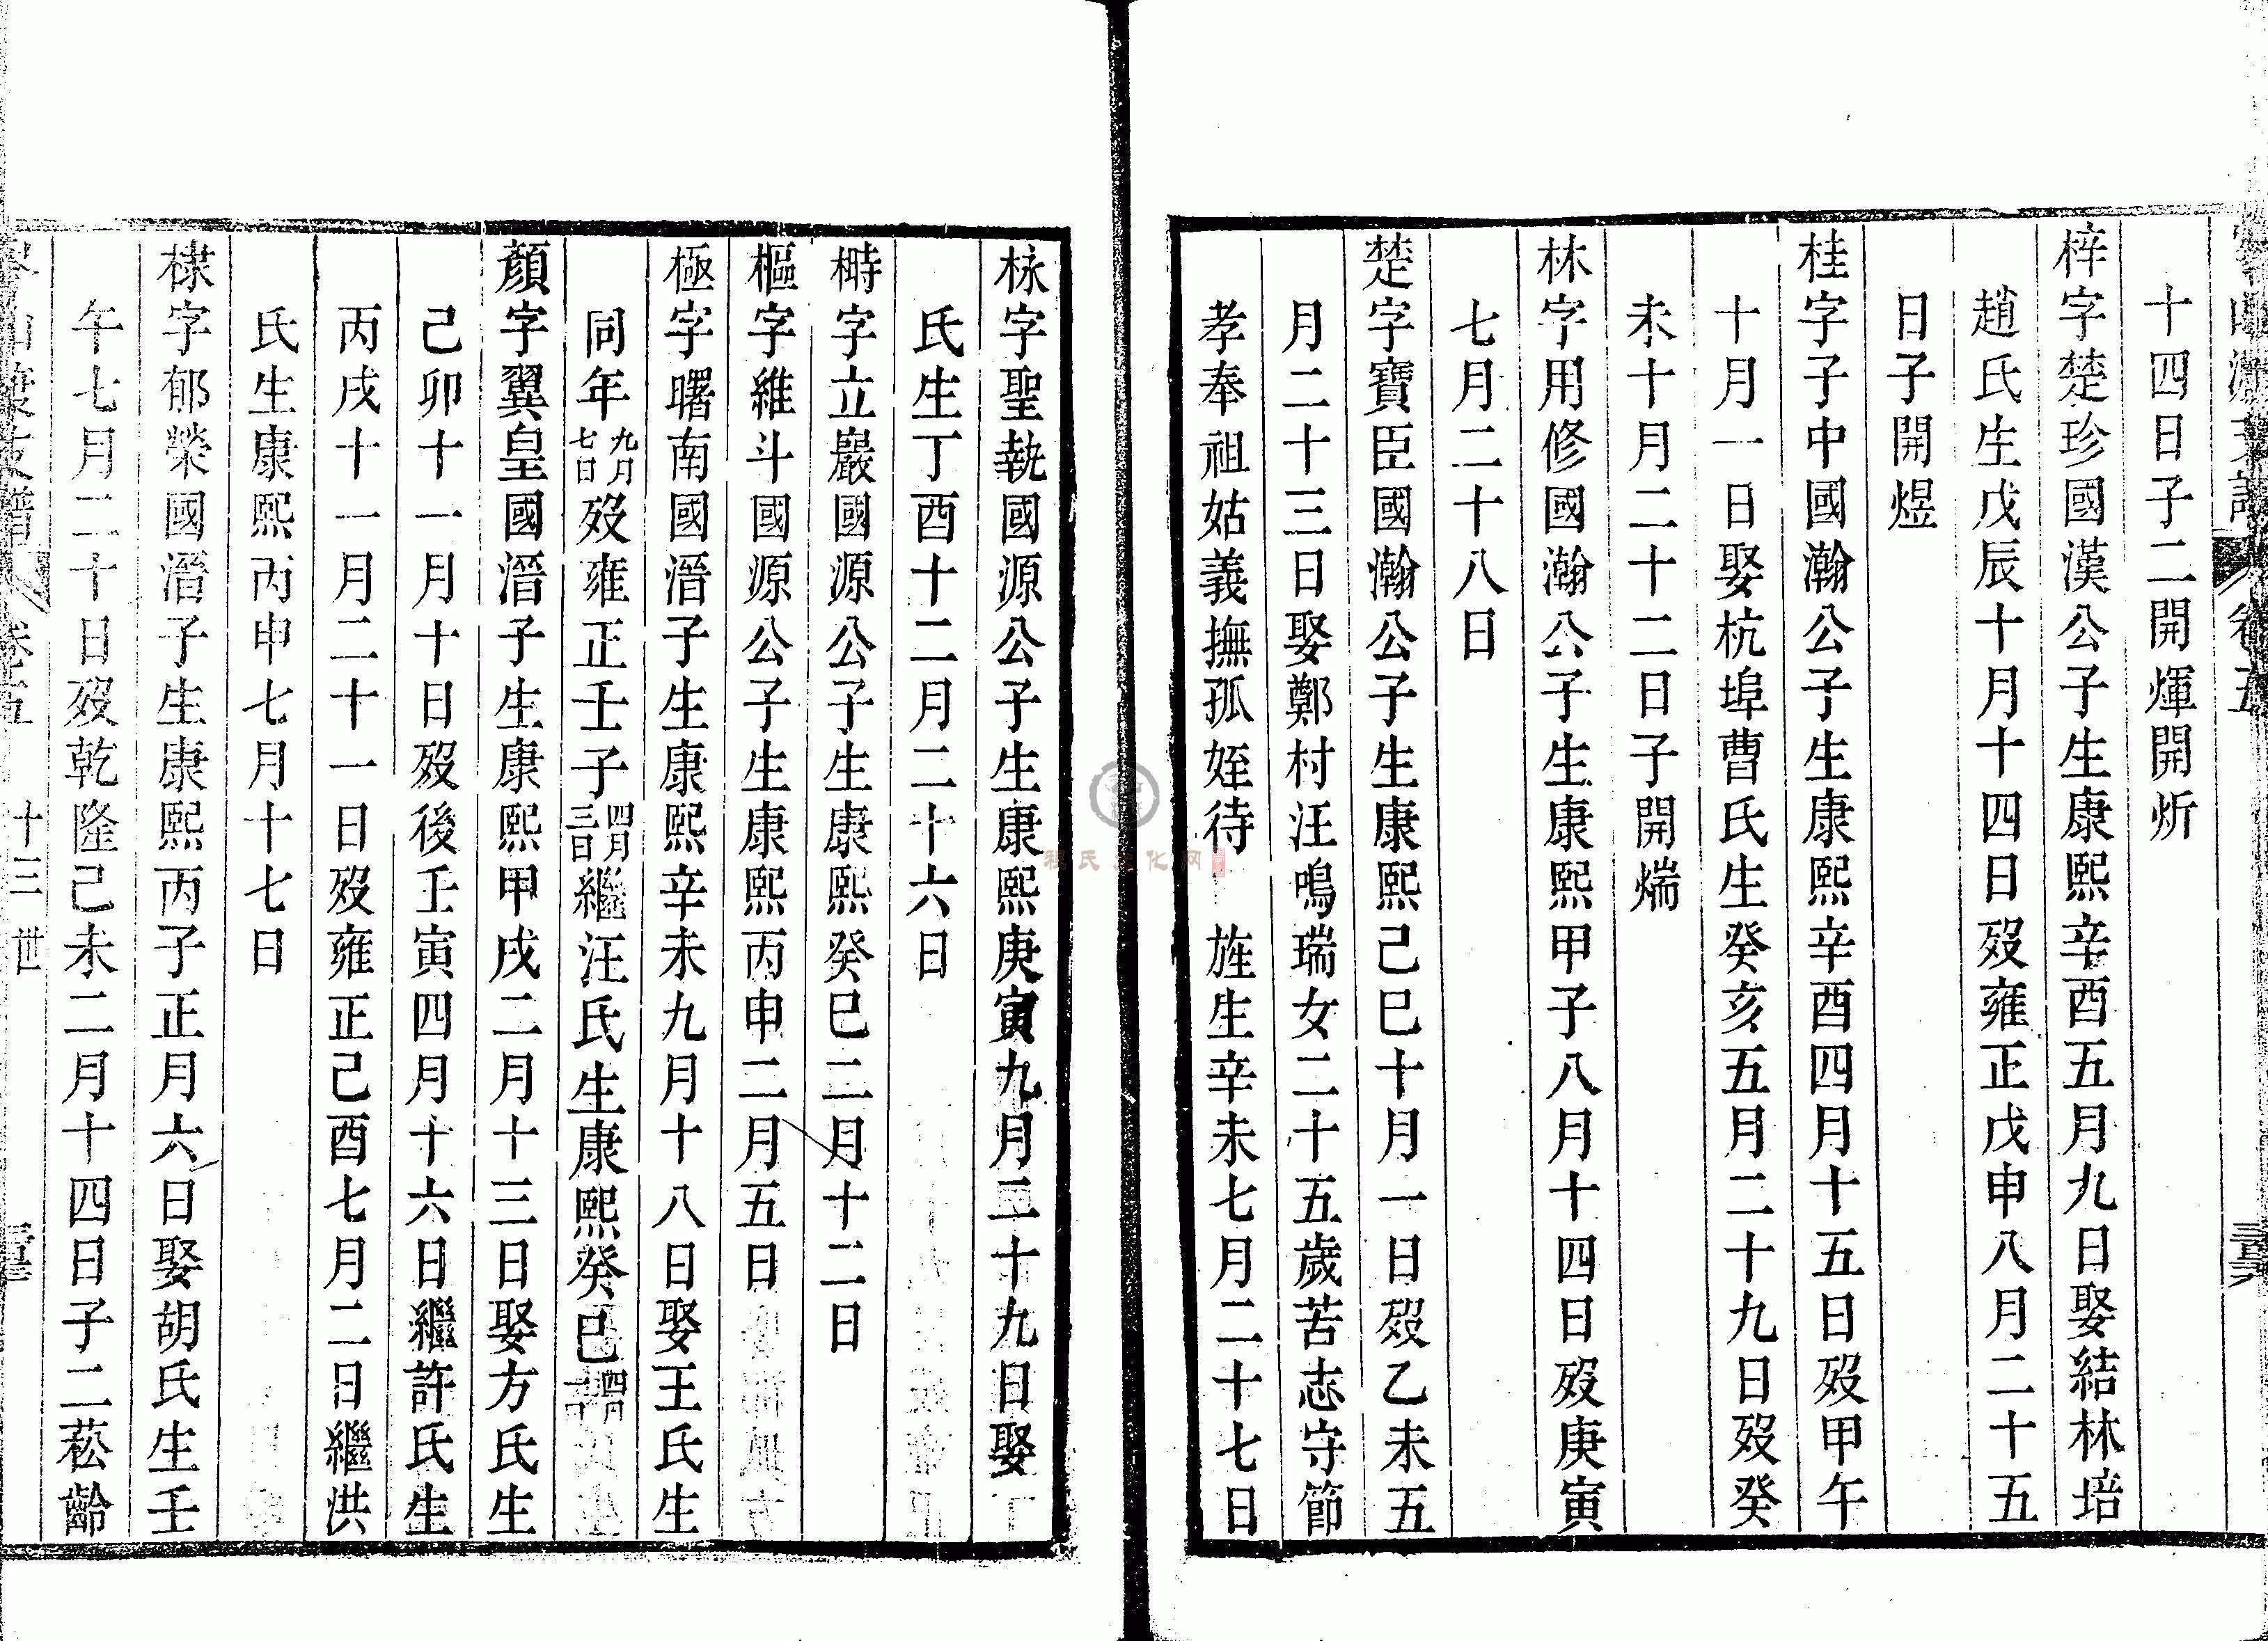 十四日子二開煇開炘
梓字楚珍國漢公子生康熙辛酉五月九日娶結林培
趙氏生戊辰十月十四日歿雍正戊申八月二十五
日子開煜
桂字子中國瀚公子生康熙辛酉四月十五日歿甲午
十月一日娶杭埠曹氏生癸亥五月二十九日歿癸
未十月二十二日子開煓
林字用修國瀚公子生康熙甲子八月十四日歿庚寅
七月二十八日
楚字寶臣國瀚公子生康熙己巳十月一日歿乙未五
月二十三日娶鄭村汪鳴瑞女二十五歲苦志守節
孝奉祖姑義撫孤姪待旌生辛未七月二十七日
栐字聖執國源公子生康熙庚寅九月二十九日娶
氏生丁酉十二月二十六日
榯字立巖國源公子生康熙癸巳二月十二日
樞字維斗國源公子生康熙丙申二月五日
極字曙南國溍子生康熙辛未九月十八日娶王氏生
同年九月七日歿雍正壬子四月三日繼汪氏生康熙癸巳
顏字翼皇國溍子生康熙甲戌二月十三日娶方氏生
己卯十一月十日歿後壬寅四月十六日繼許氏生
丙戌十一月二十一日歿雍正己酉七月二日繼洪
氏生康熙丙申七月十七日
棣字郁榮國溍子生康熙丙子正月六日娶胡氏生壬
午七月二十日歿乾隆己未二月十四日子二菘齡
卷五 十三世
程氏文化网